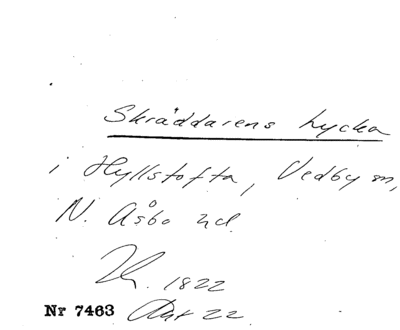 Skräddarens lycka
i Hyllstofta, Vedby sn,
N. Åsbo hd.
1822
Nr 7463 Akt 22